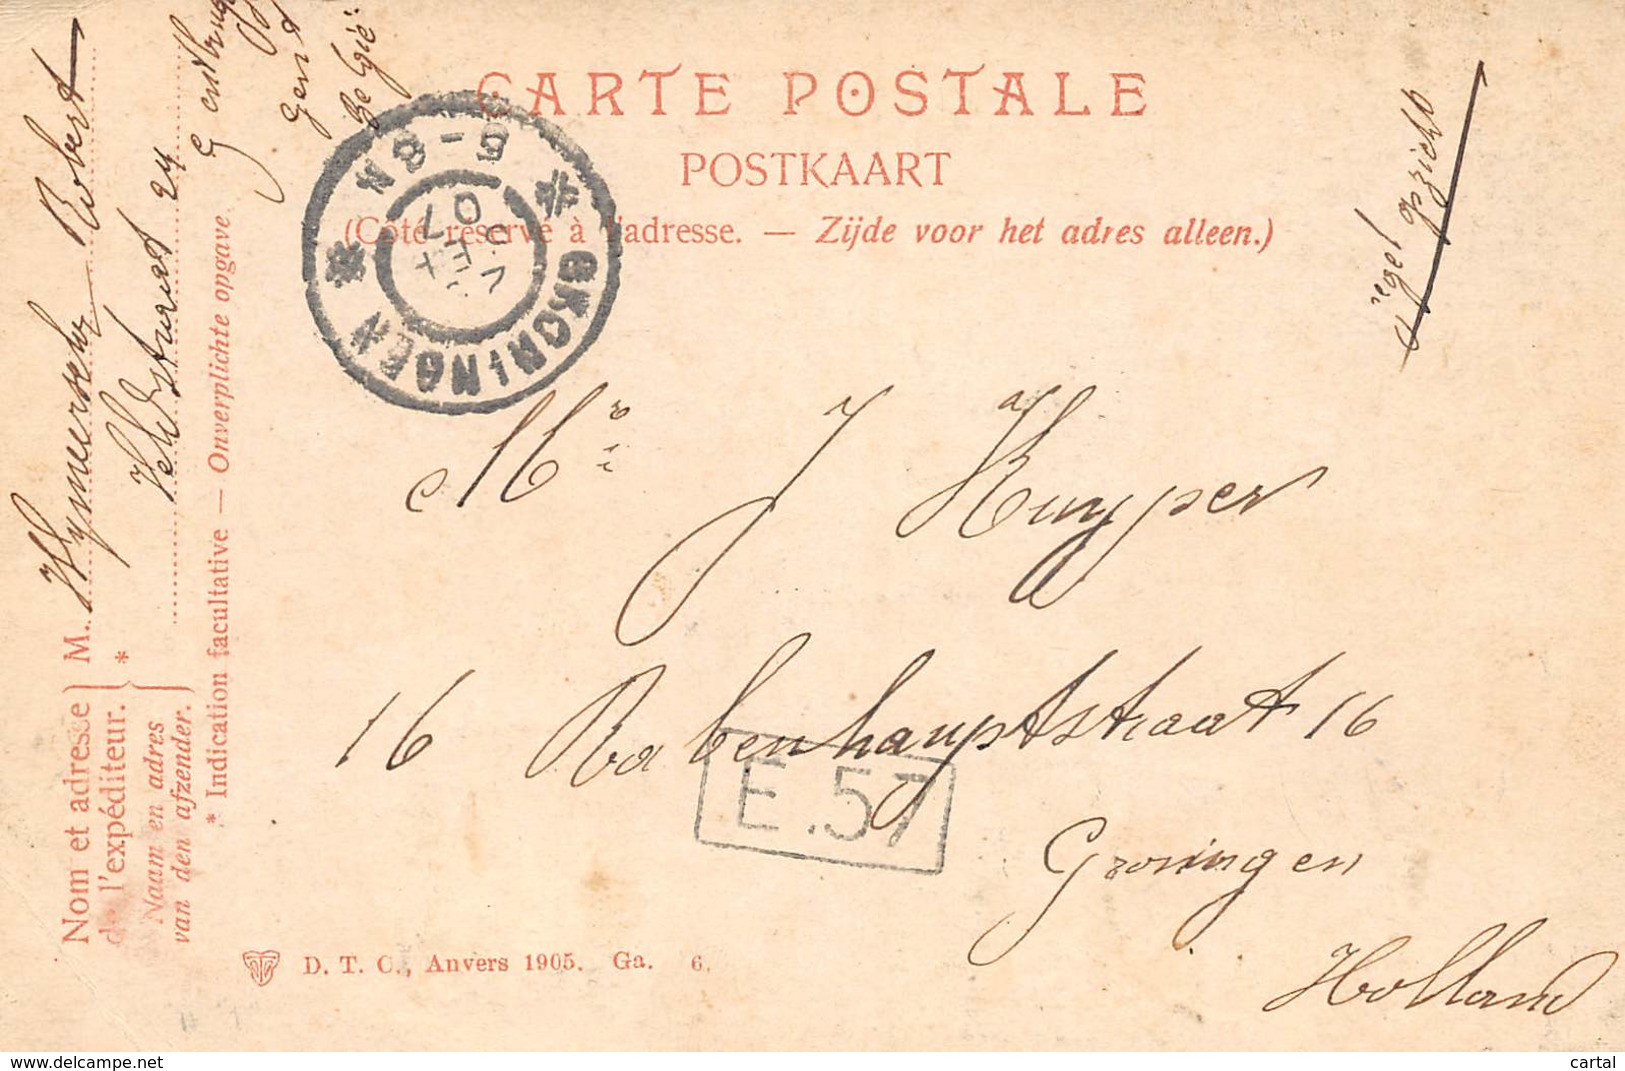 CARTE POSTALE
POSTKAART
(Côté réservé à l'adresse. — Zijde voor het adres alleen.)
Mr J Kuyper
16 Rabenhauptstraat 16
Groningen
Holland
Nom et adresse
de l'expéditeur.
Naam en adres
van den afzender.
M.
*
* Indication facultative — Onverplichte opgave.
Robert
24
Gent
België
GRONINGEN
5-8N
OCT
07
E.57
D. T. C., Anvers 1905. Ga. 6.
www.delcampe.net
cartal